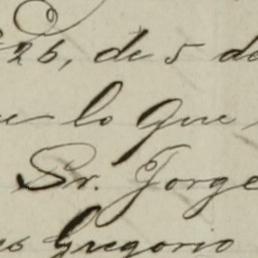 26, de 5 de
lo que
Sr. Jorge
Gregorio